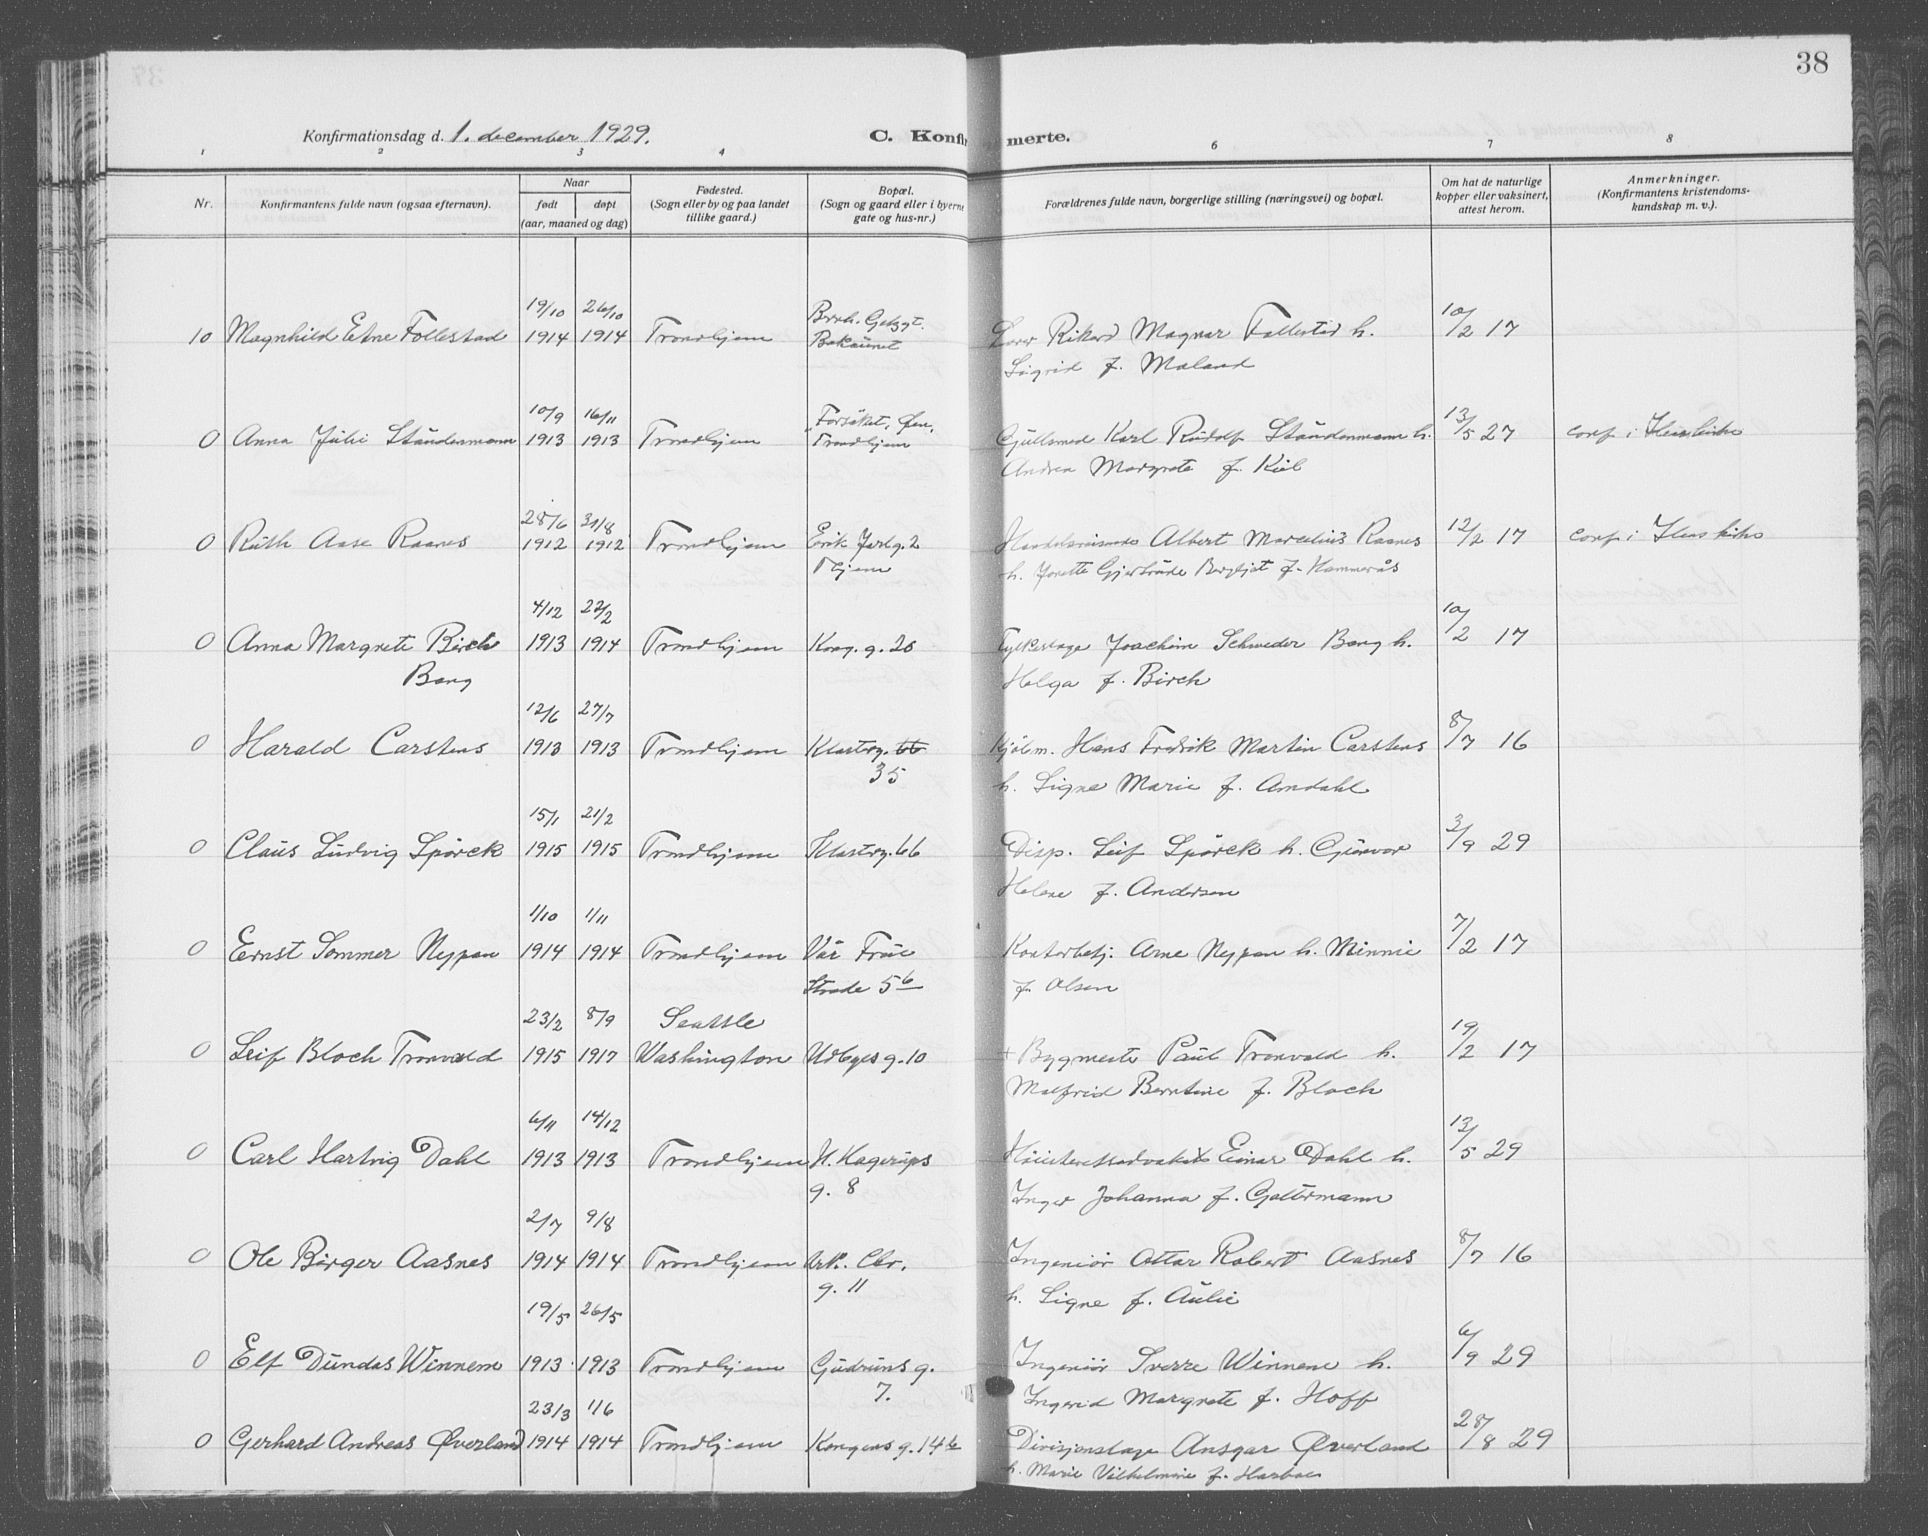 38
Konfirmationsdag d. 1. december 1929.
C. Konfirmerte.
1 2 3 4 6 7 8
Nr.
Konfirmantens fulde navn (ogsaa efternavn).
Naar
født døpt
(aar, maaned og dag)
Fødested.
(Sogn eller by og paa landet
tillike gaard.)
Bopæl.
(Sogn og gaard eller i byerne
gate og hus-nr.)
Forældrenes fulde navn, borgerlige stilling (næringsvei) og bopæl.
Om hat de naturlige
kopper eller vaksinert,
attest herom.
Anmerkninger.
(Konfirmantens kristendoms-
kundskap m. v.).
19/10 26/10 10/2 17
10 Magnhild Etne Follestad 1914 1914 Trondhjem Bakaunet Rikard Magnar Follestad h.
Sigrid f. Maland
10/9 16/11 13/5 27
0 Anna Julie Staudenmann 1913 1913 Trondhjem Trondhjem Gullsmed Karl Rudolf Staudenmann h. conf i
Andrea Margrete f. Kiel
28/6 31/8 12/2 17
0 Ruth Aase Raanes 1912 1912 Trondhjem Erik Jarl g. 2 Albert Marcelius Raanes conf i
Thjem h. Jonette Gjertrude Bergljot f. Hammerås
4/12 22/2 10/2 17
0 Anna Margrete Birch 1913 1914 Trondhjem Kong. g. 20 Joachim Schweder Bang h.
Bang Helga f. Birch
12/6 27/7 8/7 16
0 Harald Carstens 1913 1913 Trondhjem Klostrg. 66 Kjøbm. Hans Fredrik Martin Carstens
35 h. Signe Marie f. Amdahl
15/1 21/2 3/9 29
0 Claus Ludvig Spørck 1915 1915 Trondhjem Klostrg. 66 Disp. Leif Spørck h. Gunvor
Helene f. Andersen
1/10 1/11 7/2 17
0 Ernst Sommer Nypan 1914 1914 Trondhjem Vår Frue Kontorbetj. Arne Nypan h. Minnie
Strade 5b f. Olsen
23/2 8/9 Seattle 19/2 17
0 Leif Bloch Tronvold 1915 1917 Washington Udbyes g. 10 + Bygmester Paul Tronvold h.
Malfrid Berntine f. Bloch
6/11 14/12 13/5 29
0 Carl Hartvig Dahl 1913 1913 Trondhjem H. Hagerups Høiesteretsadvokat Einar Dahl h.
g. 8 Inger Johanna f. Galtermann
2/7 9/8 8/7 16
0 Ole Børger Aasnes 1914 1914 Trondhjem Ark. Chr. Ingeniør Ottar Robert Aasnes
g. 11 h. Signe f. Aulie
19/5 26/5 6/9 29
0 Elf Dundas Winnem 1913 1913 Trondhjem Gudruns g. Ingeniør Sverre Winnem h.
7. Ingerid Margrete f. Hoff
23/3 1/6 28/8 29
0 Gerhard Andreas Øverland 1914 1914 Trondhjem Kongens g. 14b Divisjonslæge Ansgar Øverland
h. Marie Vilhelmine f. Harboe